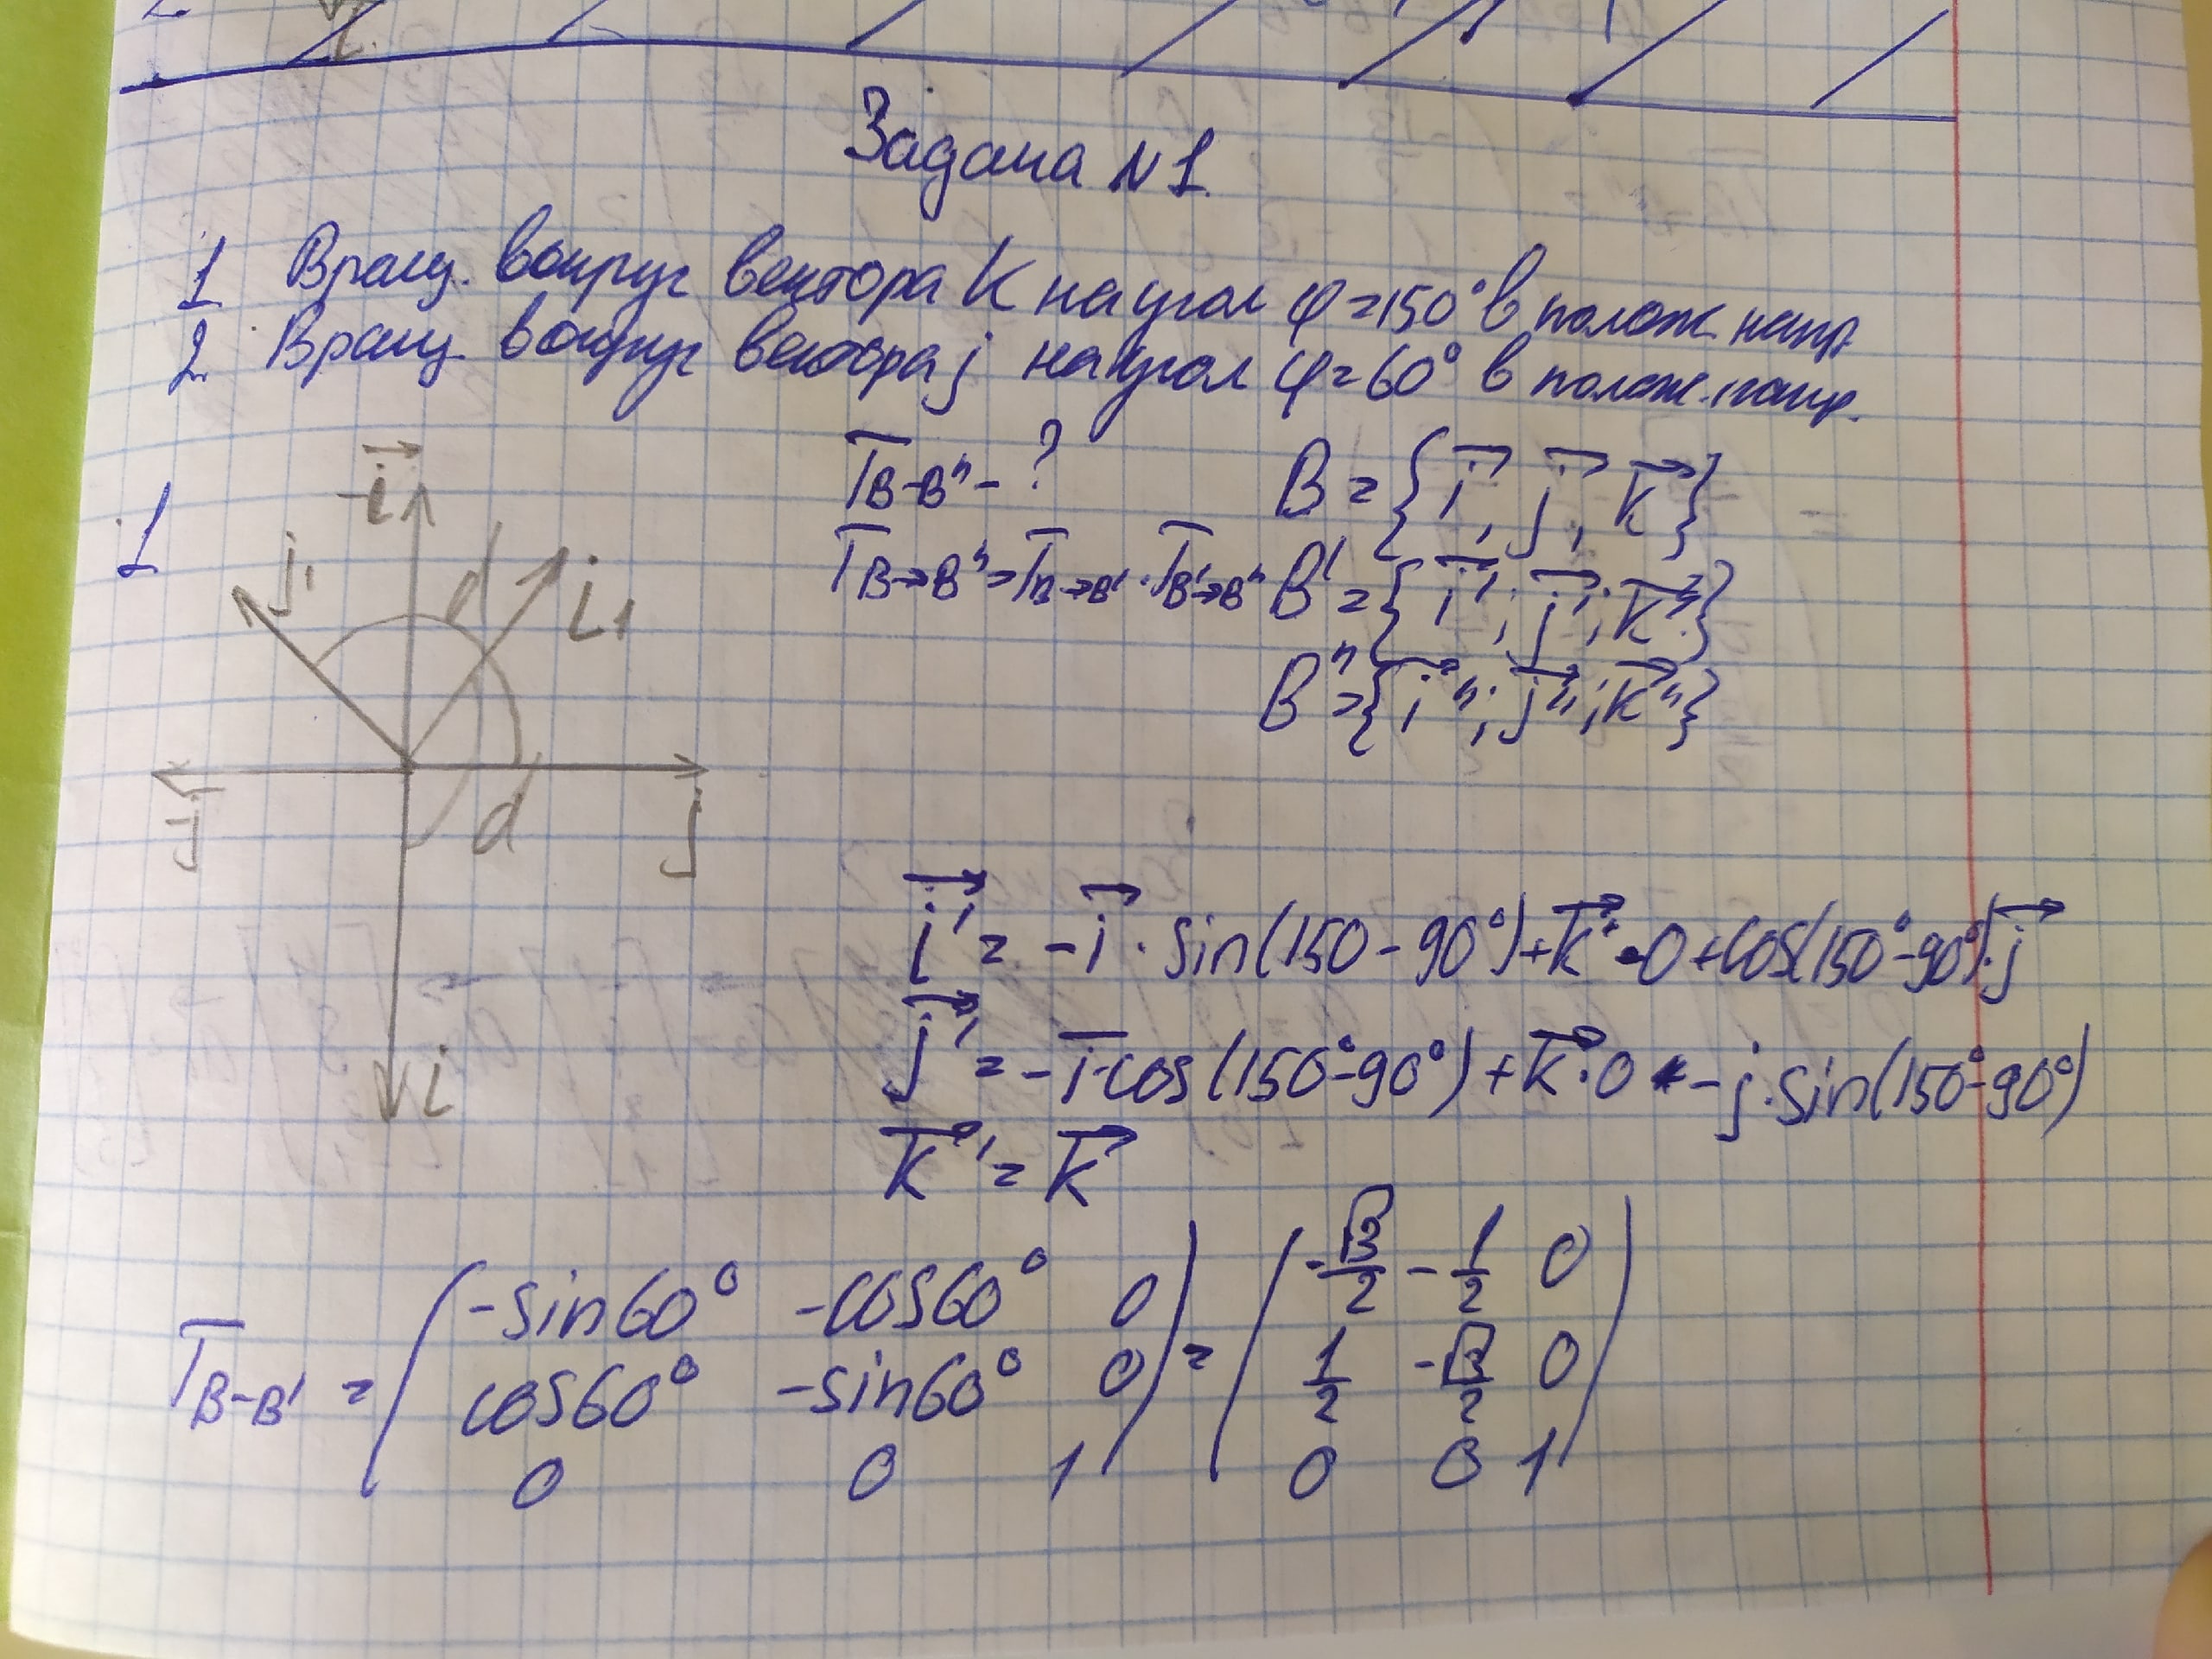 Задача N1.
1 Вращ. вокруг вектора K на угол φ=150° в полож. напр.
2 Вращ. вокруг вектора j на угол φ=60° в полож. напр.
T B-B" - ?
B = {i, j, k}
T B→B" = T B→B' · T B'→B"
B' = {i'; j'; k"}
B" = {i"; j"; k"}
1
-i
j₁
d
i₁
-j
d
j
i
i' = -i · sin(150-90°)+k·0+cos(150°-90°)·j
j' = -i·cos(150°-90°)+k·0 -j·sin(150°-90°)
k' = k
T B-B' = ( -sin60° -cos60° 0 ) = ( -√3/2 -1/2 0 )
cos60° -sin60° 0 1/2 -√3/2 0
0 0 1 0 0 1